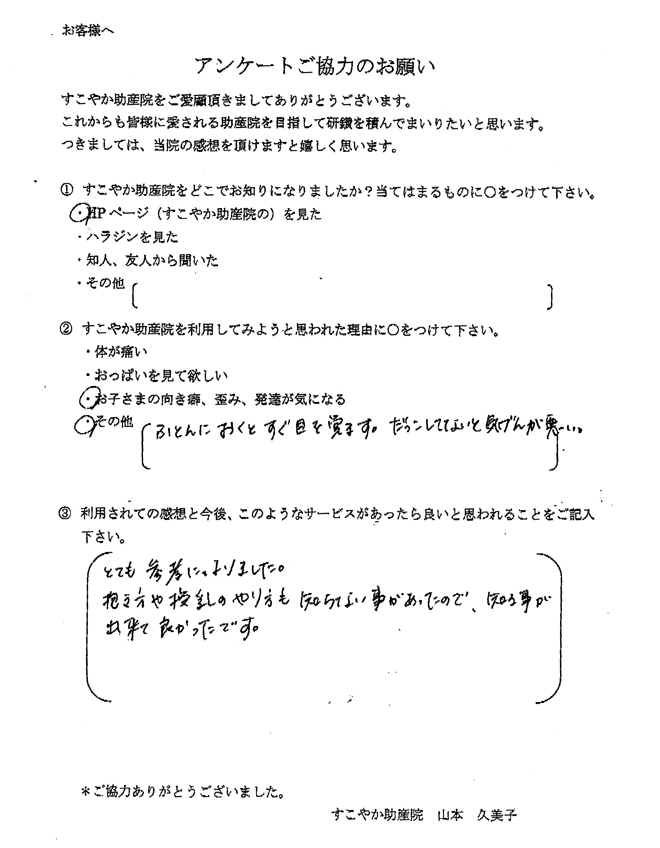 お客様へ
アンケートご協力のお願い
すこやか助産院をご愛顧頂きましてありがとうございます。
これからも皆様に愛される助産院を目指して研鑽を積んでまいりたいと思います。
つきましては、当院の感想を頂けますと嬉しく思います。
① すこやか助産院をどこでお知りになりましたか？当てはまるものに〇をつけて下さい。
・HPページ（すこやか助産院の）を見た
・ハラジンを見た
・知人、友人から聞いた
・その他
② すこやか助産院を利用してみようと思われた理由に〇をつけて下さい。
・体が痛い
・おっぱいを見て欲しい
・お子さまの向き癖、歪み、発達が気になる
・その他 ふとんにおくとすぐ目を覚ます。だっこしてないと気げんが悪い。
③ 利用されての感想と今後、このようなサービスがあったら良いと思われることをご記入
下さい。
とても参考になりました。
抱き方や授乳のやり方も知らない事があったので、知る事が
出来て良かったです。
＊ご協力ありがとうございました。
すこやか助産院 山本 久美子